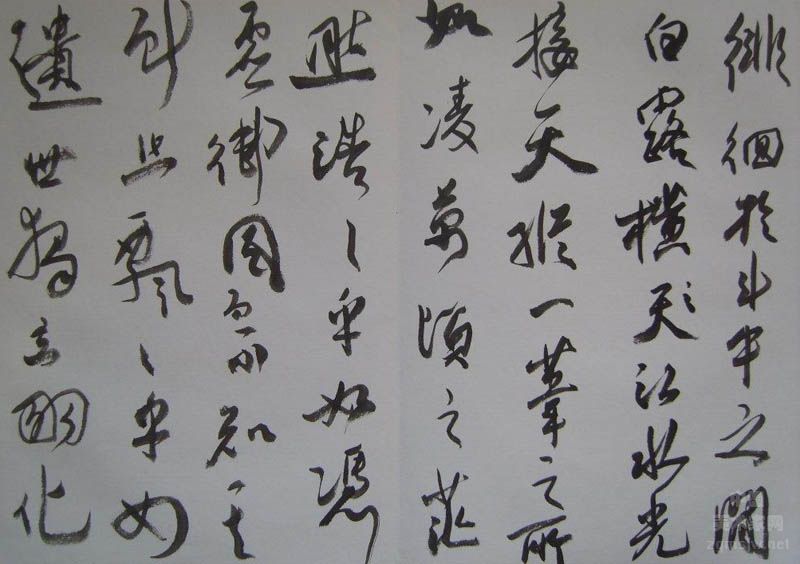 徘徊於斗牛之間
白露橫天江水光
接天縱一葦之所
如凌萬頃之茫
然浩〻乎如憑
虛御風而不知其
所止飄〻乎如
遺世獨立羽化